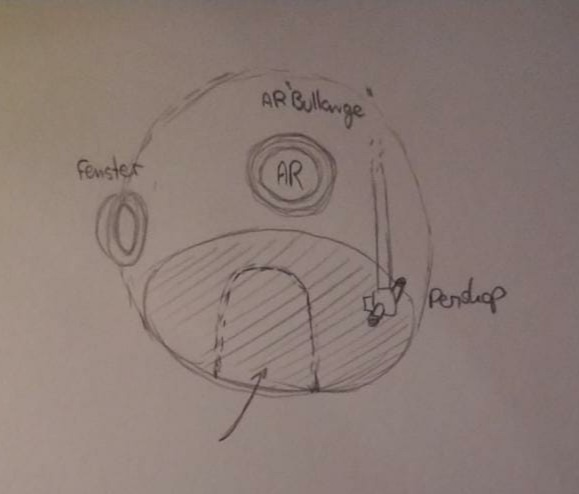 AR "Bullauge"
Fenster
AR
Periskop